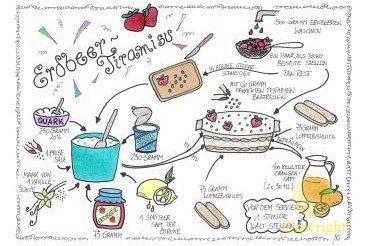 Erdbeer-
Tiramisu
500 GRAMM ERDBEEREN
WASCHEN
EIN PAAR ALS DEKO
BEISEITE STELLEN
DEN REST
IN KLEINE STÜCKE
SCHNEIDEN
MIT 20 GRAMM
GEHACKTEN PISTAZIEN
BESTREUEN
QUARK
250 GRAMM
1 PRISE
SALZ
MARK VON
1 VANILLE-
SCHOTE
250 GRAMM
75 GRAMM
1 SPRITZER
SAFT DER
ZITRONE
75 GRAMM
LÖFFELBISKUITS
75 GRAMM
LÖFFELBISKUITS
100 MILLILITER
ORANGEN-
SAFT
(2 x 50 ML)
VOR DEM SERVIEREN
1 STUNDE
KALT STELLEN